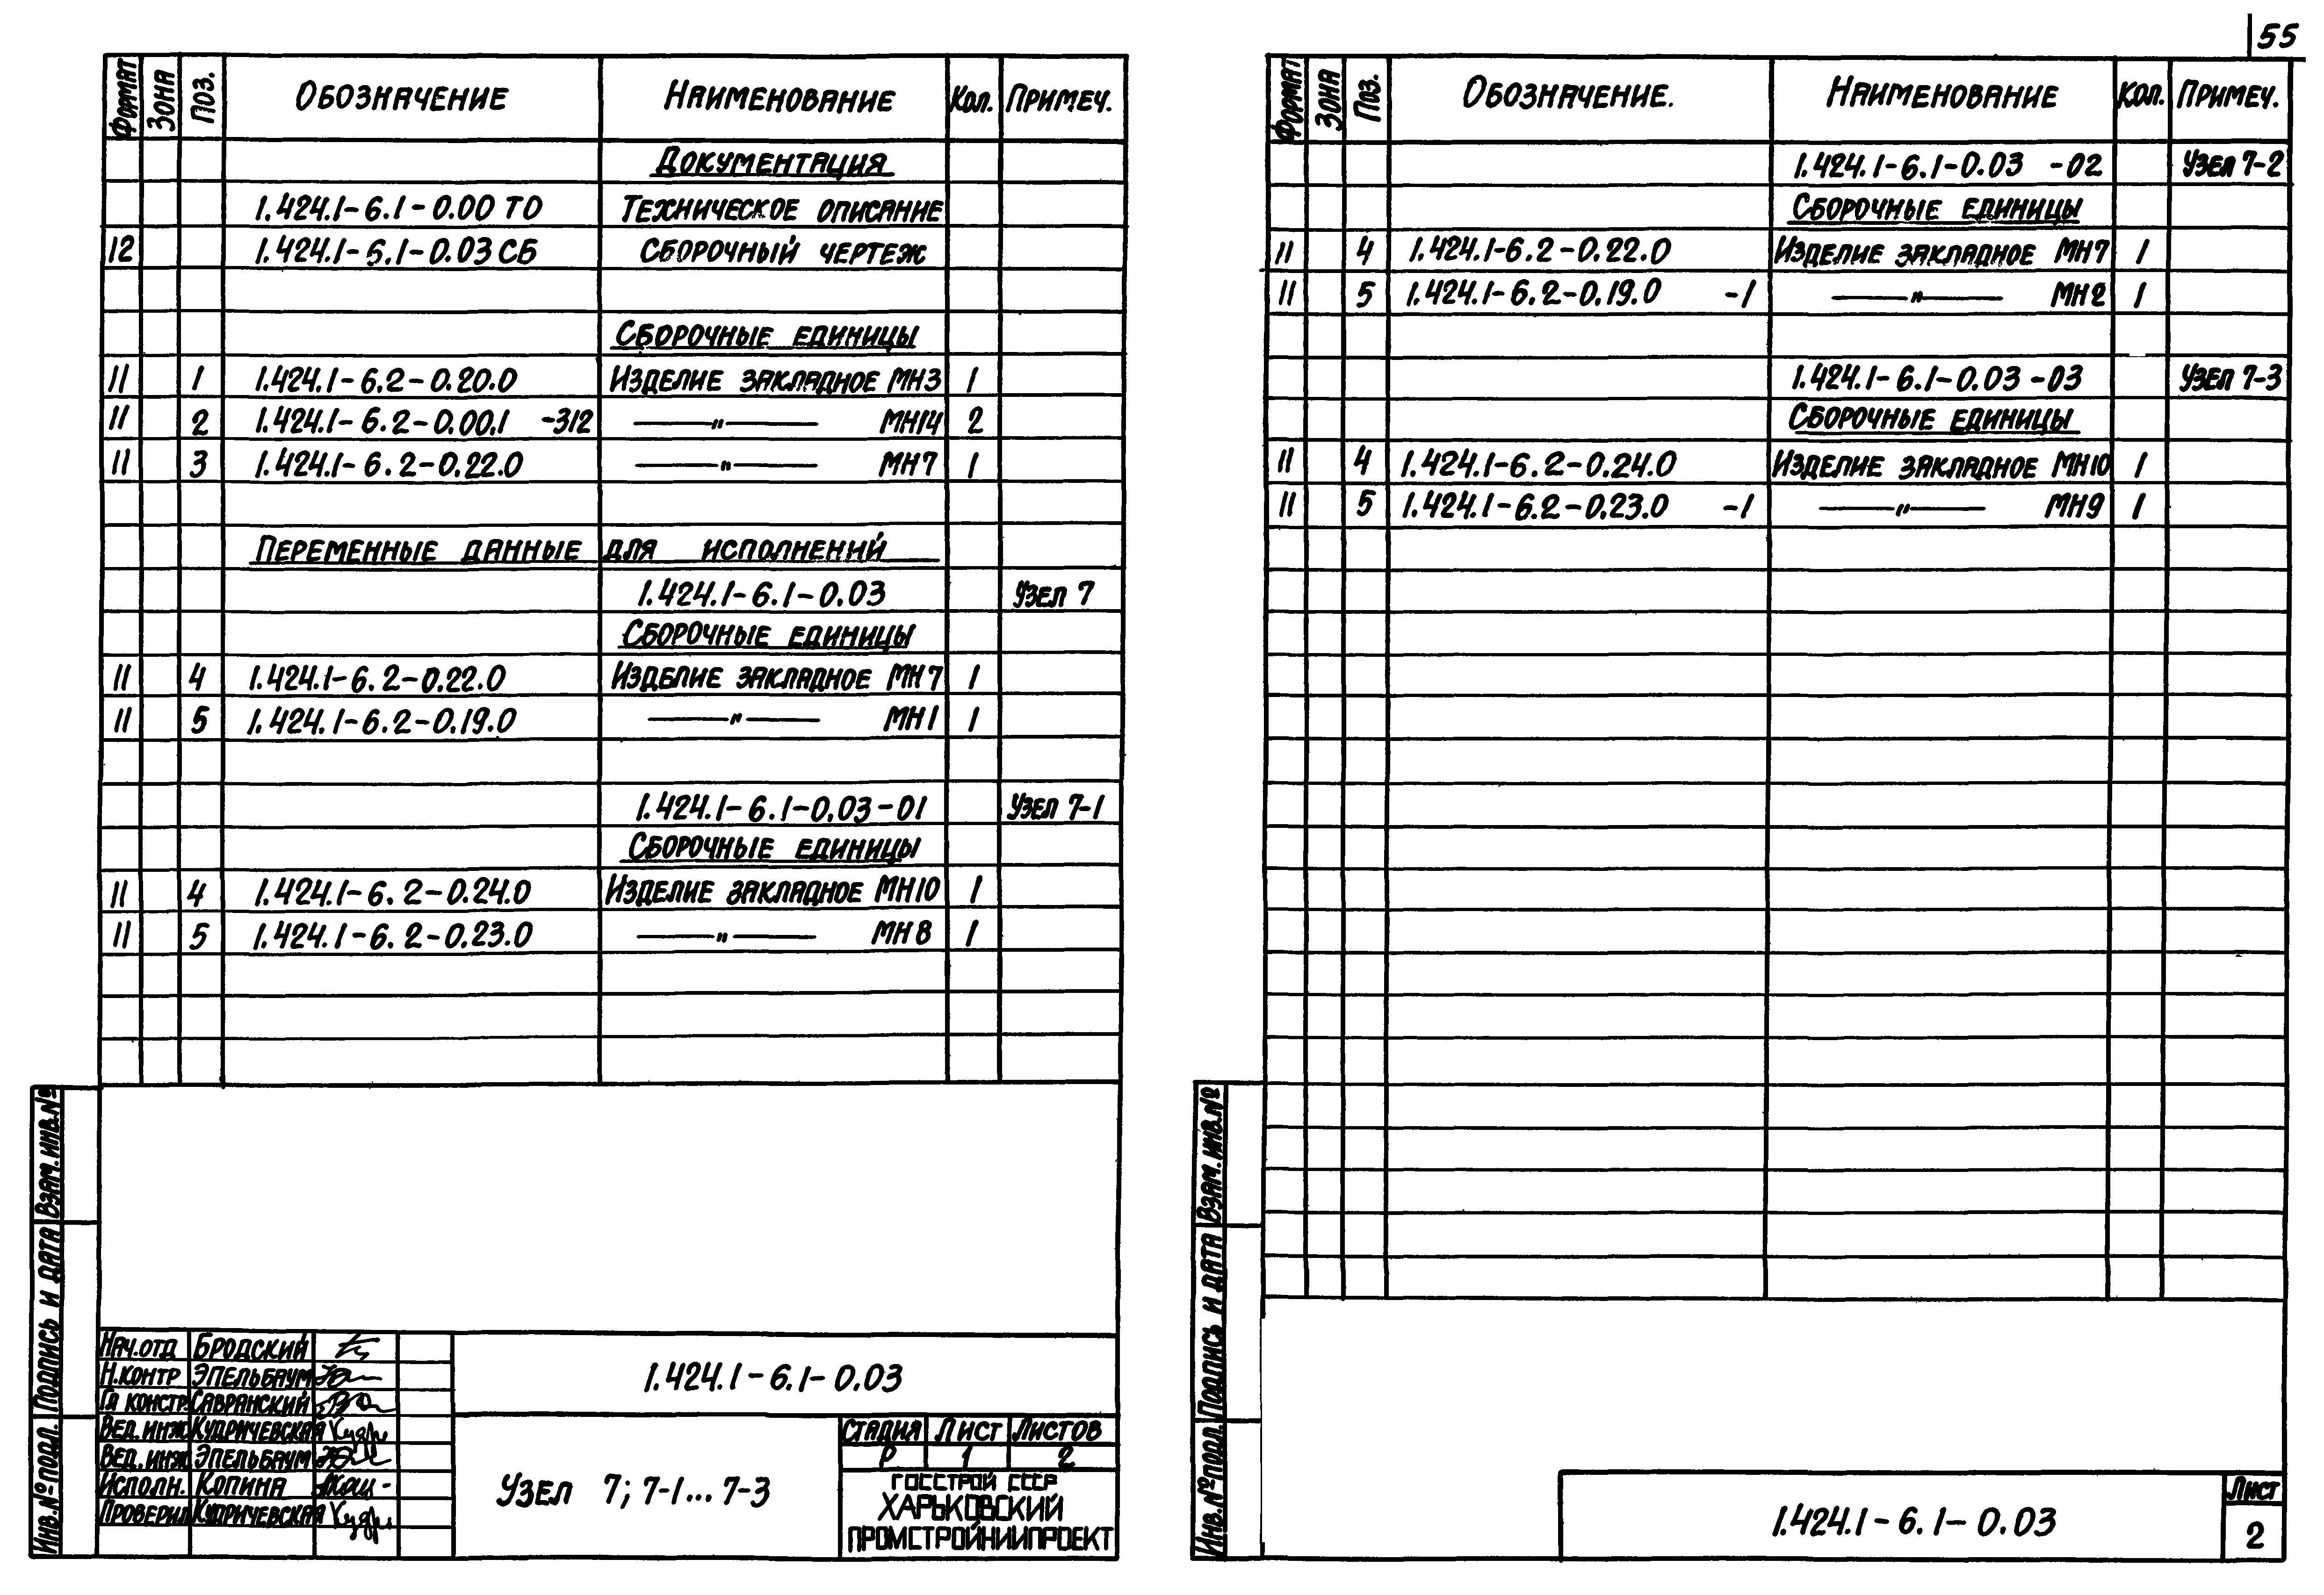 55
Формат Зона Поз. Обозначение Наименование Кол. Примеч.
Документация
1.424.1-6.1-0.00 ТО Техническое описание
12 1.424.1-6.1-0.03 СБ Сборочный чертеж
Сборочные единицы
11 1 1.424.1-6.2-0.20.0 Изделие закладное МН3 1
11 2 1.424.1-6.2-0.00.1 -312 —"— МН14 2
11 3 1.424.1-6.2-0.22.0 —"— МН7 1
Переменные данные для исполнений
1.424.1-6.1-0.03 Узел 7
Сборочные единицы
11 4 1.424.1-6.2-0.22.0 Изделие закладное МН7 1
11 5 1.424.1-6.2-0.19.0 —"— МН1 1
1.424.1-6.1-0.03-01 Узел 7-1
Сборочные единицы
11 4 1.424.1-6.2-0.24.0 Изделие закладное МН10 1
11 5 1.424.1-6.2-0.23.0 —"— МН8 1
Инв.№подл. Подпись и дата Взам.инв.№
Нач.отд Бродский
Н.контр Эпельбаум
Гл констр. Савранский
Вед.инж Кудричевская
Вед.инж Эпельбаум
Исполн. Копина
Проверил Кудричевская
1.424.1-6.1-0.03
Узел 7; 7-1... 7-3
Стадия Лист Листов
Р 1 2
ГОССТРОЙ СССР
ХАРЬКОВСКИЙ
ПРОМСТРОЙНИИПРОЕКТ
Формат Зона Поз. Обозначение. Наименование Кол. Примеч.
1.424.1-6.1-0.03 -02 Узел 7-2
Сборочные единицы
11 4 1.424.1-6.2-0.22.0 Изделие закладное МН7 1
11 5 1.424.1-6.2-0.19.0 -1 —"— МН2 1
1.424.1-6.1-0.03-03 Узел 7-3
Сборочные единицы
11 4 1.424.1-6.2-0.24.0 Изделие закладное МН10 1
11 5 1.424.1-6.2-0.23.0 -1 —"— МН9 1
Инв.№подл. Подпись и дата Взам.инв.№
1.424.1-6.1-0.03
Лист
2